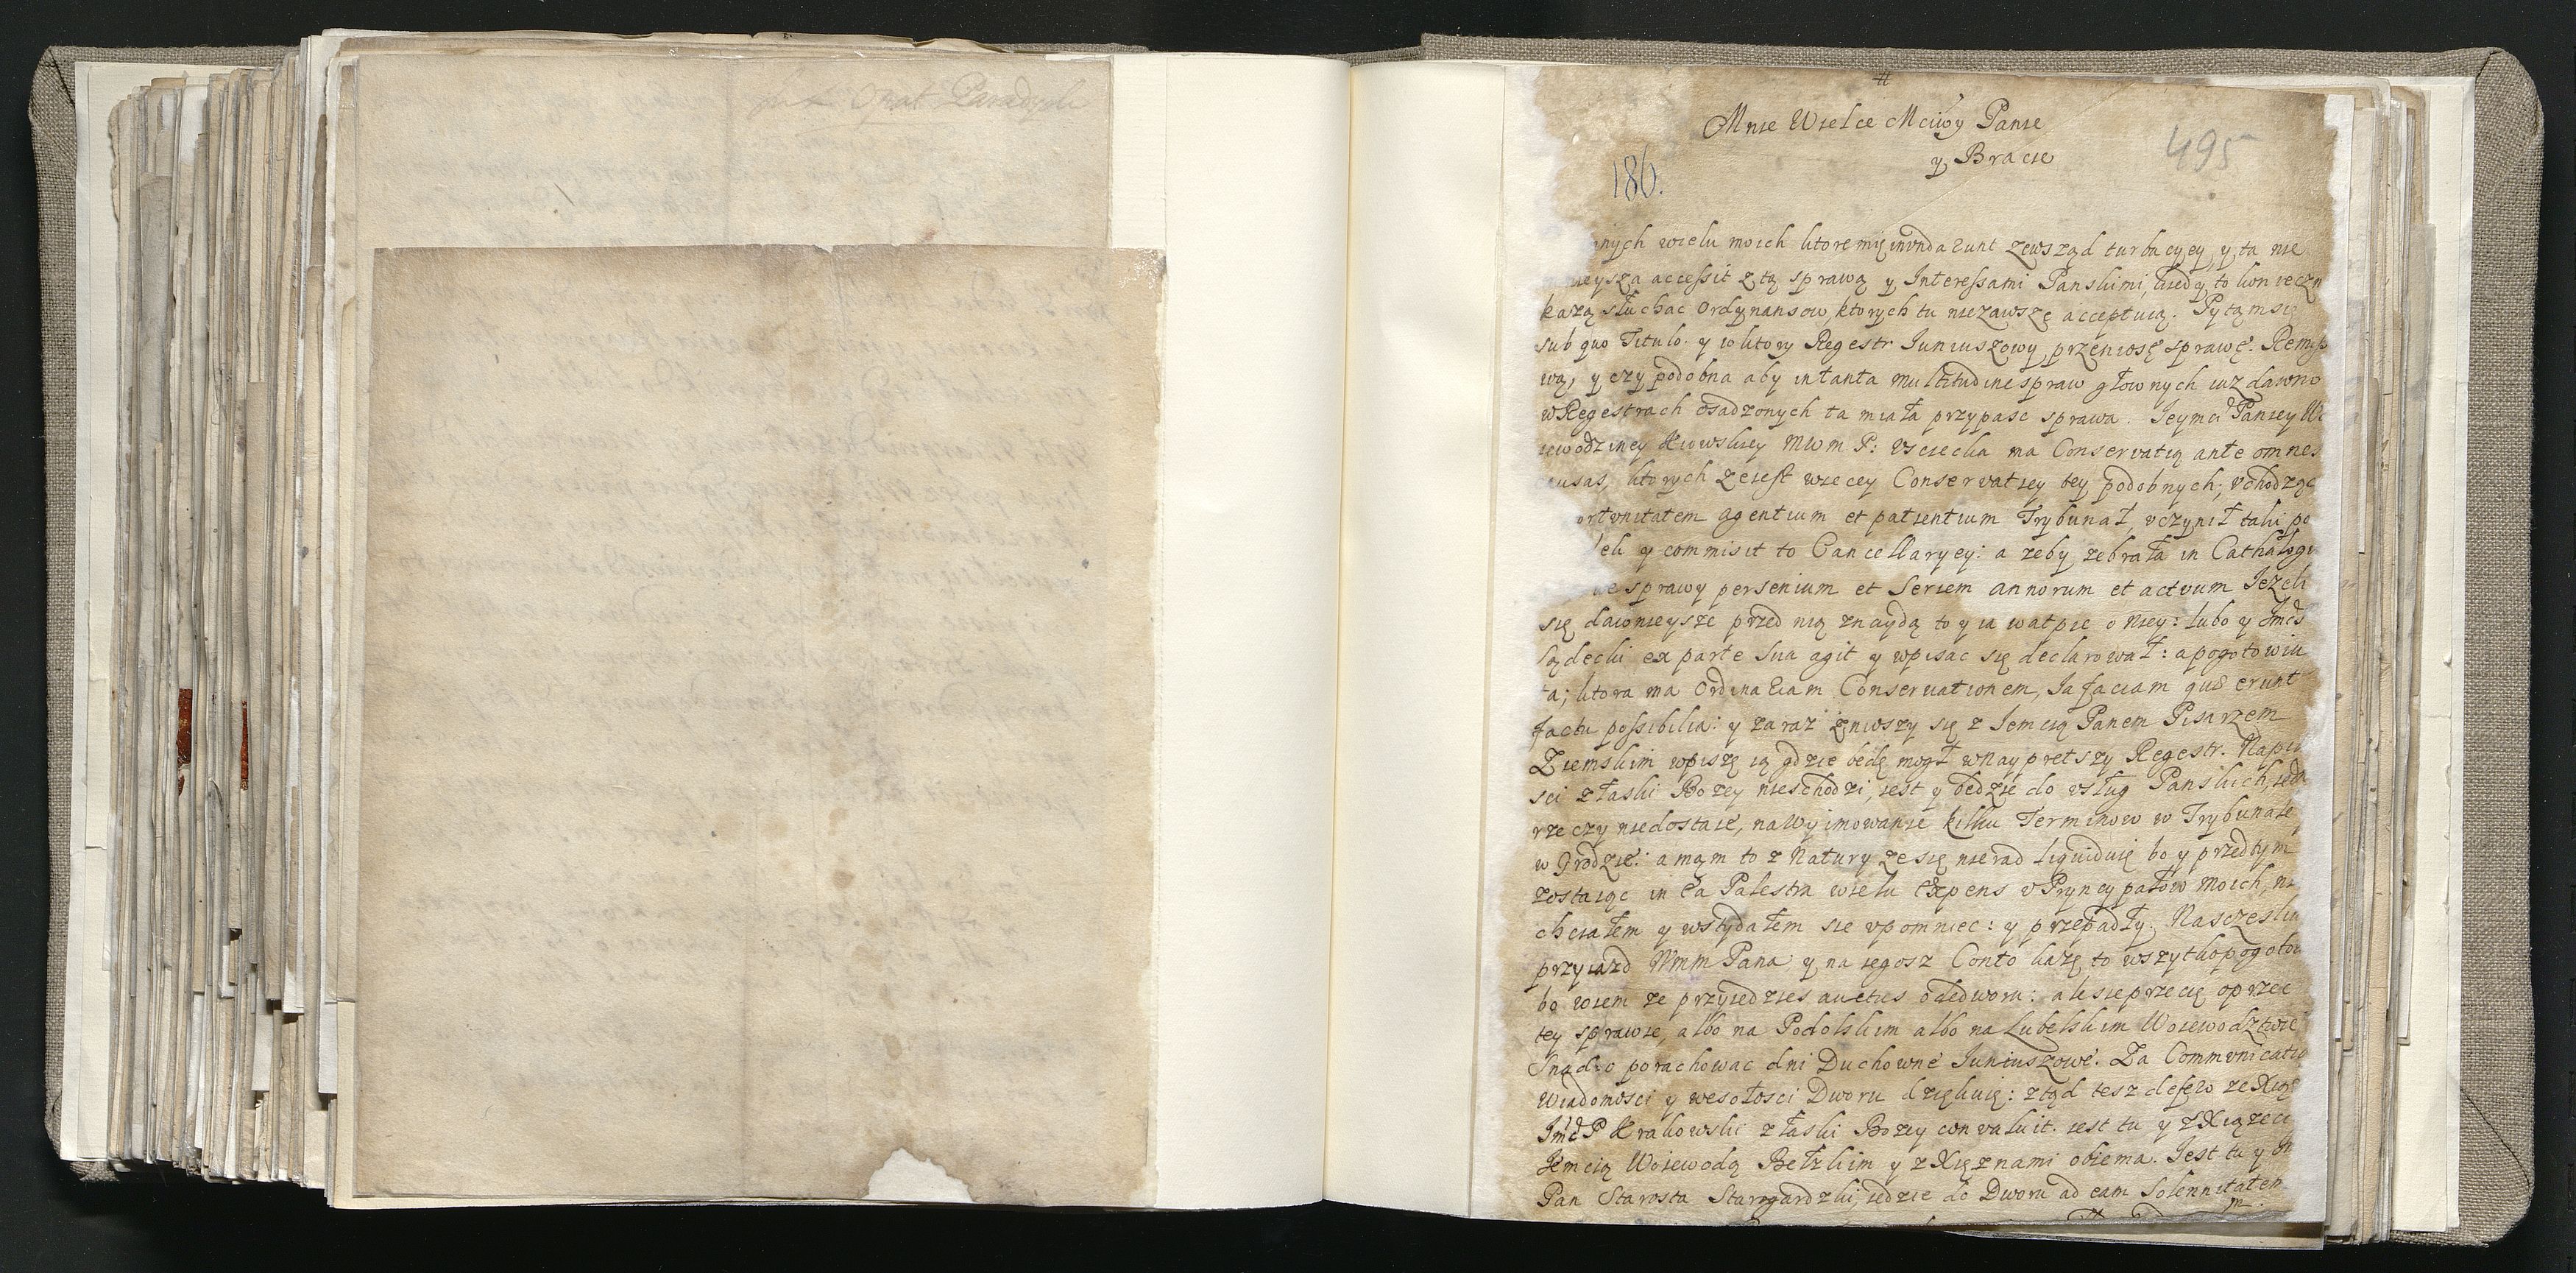 Mnie Wielce Mciwy Panie
y Bracie
495
186.
inych wielu moich ktore mię inundarunt zewsząd turbacyey, y ta nie
ieysza accessit z tą sprawą y Interessami Panskimi, kiedy to konieczn
każą słuchac Ordynansow, ktorych tu niezawszę acceptuią. Pytąm się
sub quo Titulo. y w ktory Regestr Juniuszowy przeniosę sprawę.
wą, y czy podobna aby in tanta multitudine spraw głownych iuz dawno
w Regestrach osadzonych ta miała przypasc sprawa. Jeymci Paniey Wo
iewodziney Kiowskiey MWM P: ucieckla ma Conservatią ante omnes
ausas, ktorych ze iest wiecey Conservatiey tey podobnych; uchodząc
ortunitatem agentium et patientium Trybunał, uczynił taki po
ek y commisit to Cancellaryey: a zeby zebrała in Cathalogu
ne sprawy per senium et Seriem annorum et actuum Jezeli
się dawnieysze przed nią znaydą to y ia watpie o niey: lubo y Jmci
Sądecki ex parte sua agit y wpisac się declarował: a pogotowiu
ta; ktora ma Ordinariam Conservationem, Ja faciam quae erunt
factu possibilia: y zaraz zniwszy się z Jemcią Panem Pisarzem
Ziemskim wpiszę ią gdzie będę mogł w naypretszy Regestr. Na
sci z łaski Bozey nieschodzi, iest y będzie do usług Panskich, iedn
rzeczy niedostaie, na wyimowanie kilku Terminow w Trybunale
w Grodzie: a mąm to z Natury ze się nierad liquiduię bo y przedtym
zostaiąc in ea Palestra wielu Expens u Pryncypałow moich, ni
chciałem y wstydałem sie upomniec: y przepadły. Na sczesliw
przyiazd Wmm Pana y na iegosz Conto każę to wszytko pogotow
bo wiem ze przyiedzies auctus odedworu: ale sie przecię oprzec
tey sprawie, albo na Podolskim albo na Lubelskim Woiewodztwie
Snadno porachowac dni Duchowne Juniuszowe. Za Communicatią
Wiadomosci y wesołosci Dworu dziękuię: ztąd tesz defero ze Xiąz
Jmć P Krakowski z łaski Bozey convaluit. iest tu y z Xiązeci
Jemcią Woiewodą Bełzkim y z Xięznami obiema. Jest tu y
Pan Starosta Starogardzki, iedzie do Dworu ad eam Solennitatem